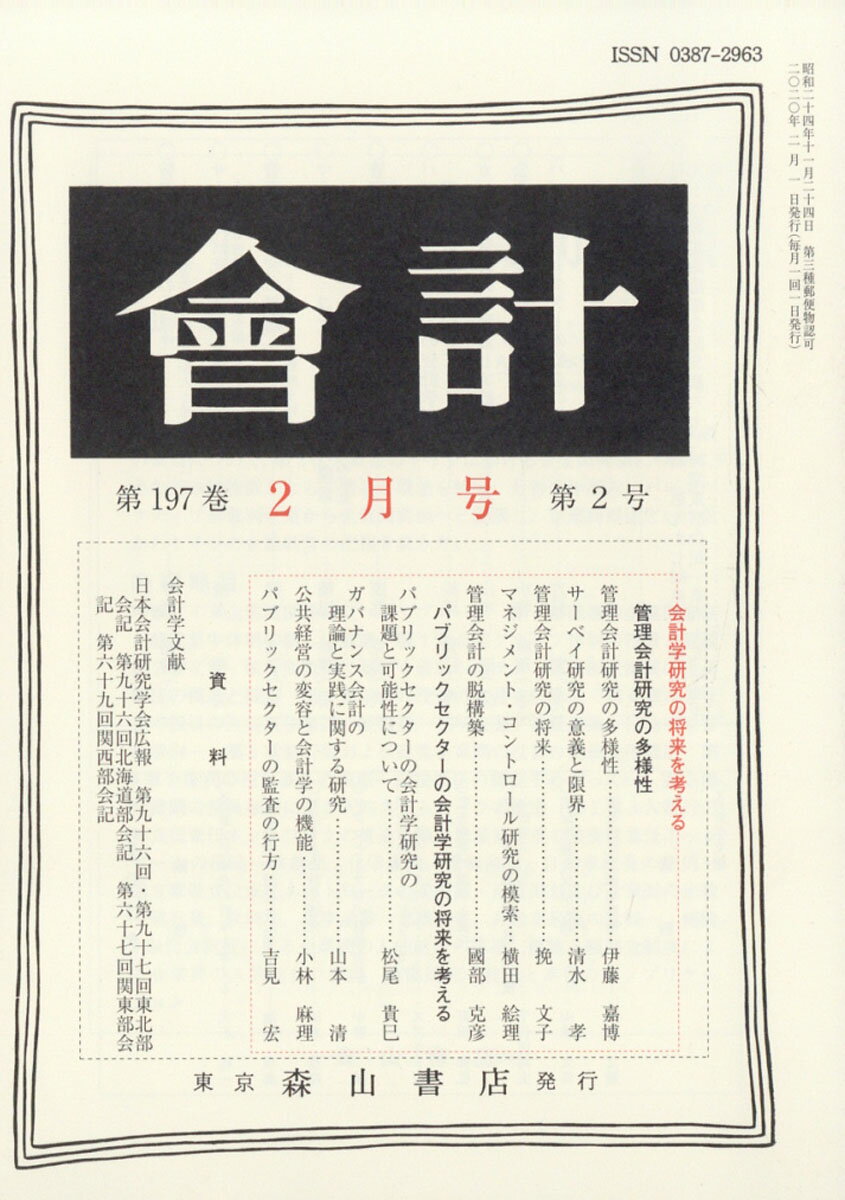 ISSN 0387-2963
昭和二十四年十一月二十四日 第三種郵便物認可
二〇二〇年二月一日発行(毎月一回一日発行)
會計
第197巻 2月号 第2号
会計学研究の将来を考える
管理会計研究の多様性
管理会計研究の多様性…………伊藤 嘉博
サーベイ研究の意義と限界…………清水 孝
管理会計研究の将来…………挽 文子
マネジメント・コントロール研究の模索…横田 絵理
管理会計の脱構築…………國部 克彦
パブリックセクターの会計学研究の将来を考える
パブリックセクターの会計学研究の
課題と可能性について…………松尾 貴巳
ガバナンス会計の
理論と実践に関する研究…………山本 清
公共経営の変容と会計学の機能…………小林 麻理
パブリックセクターの監査の行方…………吉見 宏
資料
会計学文献
日本会計研究学会広報 第九十六回・第九十七回東北部
会記 第九十六回北海道部会記 第六十七回関東部会
記 第六十九回関西部会記
東京 森山書店 発行